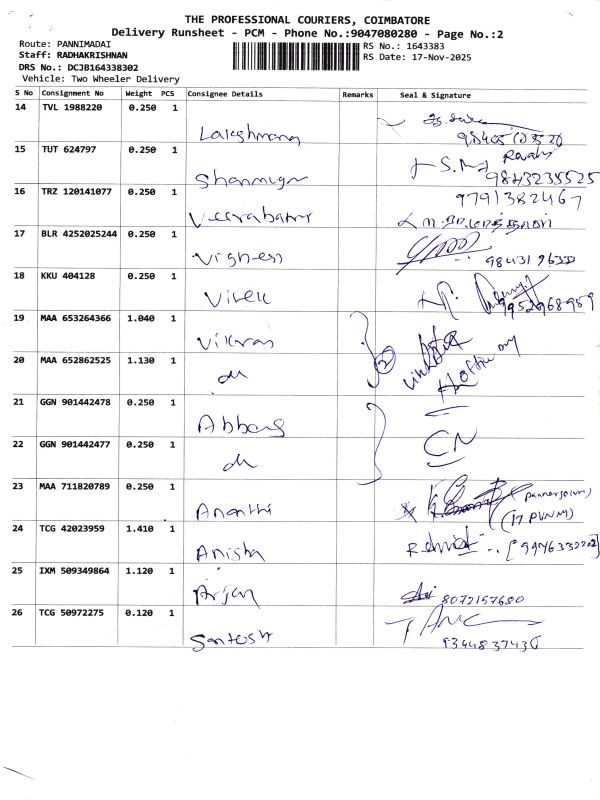 THE PROFESSIONAL COURIERS, COIMBATORE
Delivery Runsheet - PCM - Phone No.:9047080280 - Page No.:2
Route: PANNIMADAI
Staff: RADHAKRISHNAN
DRS No.: DCJB164338302
Vehicle: Two Wheeler Delivery
RS No.: 1643383
RS Date: 17-Nov-2025
S No Consignment No Weight PCS Consignee Details Remarks Seal & Signature
14 TVL 1988220 0.250 1
Lakshmanan
15 TUT 624797 0.250 1
Shanmugam 9843235525
16 TRZ 120141077 0.250 1 9791382467
Veerabathr
17 BLR 4252025244 0.250 1
Vignesh
18 KKU 404128 0.250 1
Vivek 9952968959
19 MAA 653264366 1.040 1
Vikram
20 MAA 652862525 1.130 1
21 GGN 901442478 0.250 1
Abbas
22 GGN 901442477 0.250 1 CN
23 MAA 711820789 0.250 1
Ananthi (17 PVNM)
24 TCG 42023959 1.410 1
Anisha
25 IXM 509349864 1.120 1
Arjun 8072157680
26 TCG 50972275 0.120 1
Santosh 9344837430